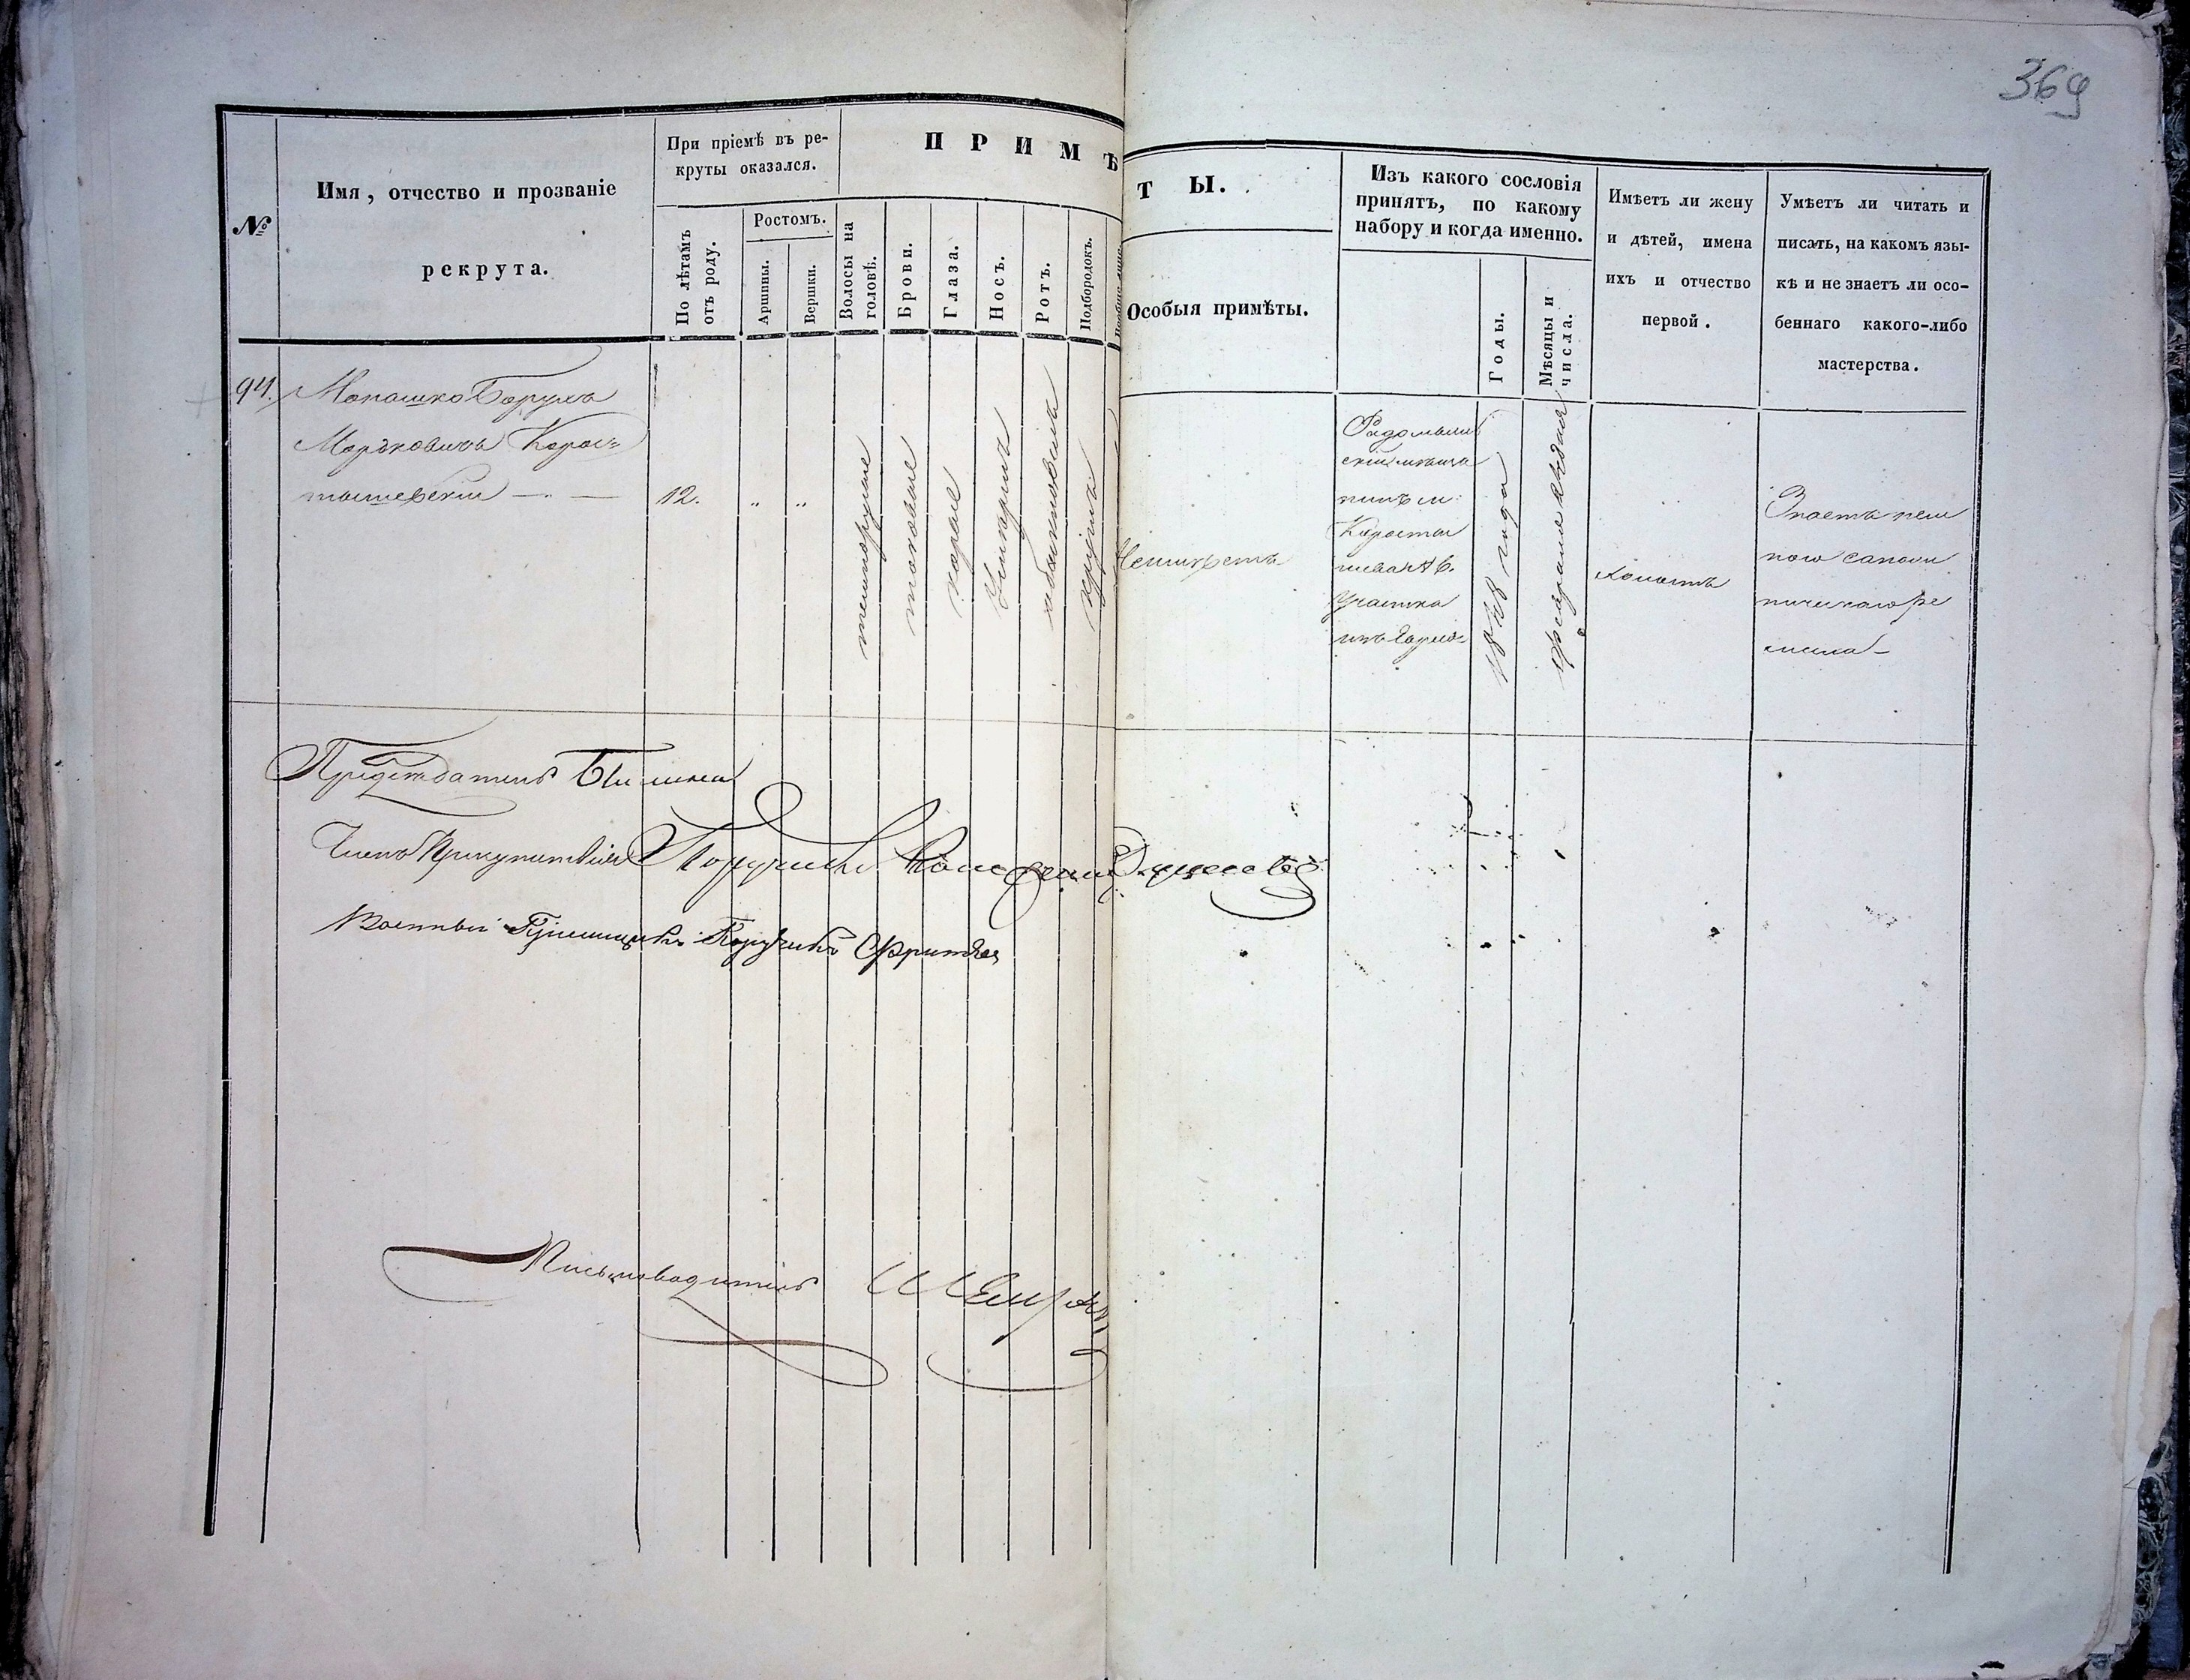 369
№
Имя, отчество и прозваніе
рекрута.
При пріемѣ въ ре-
круты оказался.
По лѣтамъ
отъ роду.
Ростомъ.
Аршины.
Вершки.
П Р И М Ѣ
Волосы на
головѣ.
Брови.
Глаза.
Носъ.
Ротъ.
Подбородокъ.
Т Ы.
Особыя примѣты.
Изъ какого сословія
принятъ, по какому
набору и когда именно.
Годы.
Мѣсяцы и
числа.
Имѣетъ ли жену
и дѣтей, имена
ихъ и отчество
первой.
Умѣетъ ли читать и
писать, на какомъ язы-
кѣ и не знаетъ ли осо-
беннаго какого-либо
мастерства.
94.
Монашко Борухъ
Морьковичъ Корос=
тышевскій
12.
" "
темнорусые
таковые
карые
умѣренъ
обыкновенъ
круглый
Неимѣетъ
Радомысль
скій мѣща
нинъ м:
Коросты
шева
участка
изъ Евреи
1848 года
февраля
холостъ
Знаетъ нем
ного сапож
ническаго ре
месла
Предсѣдатель
Членъ Присутствія Поручикъ
Военный Пріемщикъ Поручикъ
Письмоводитель